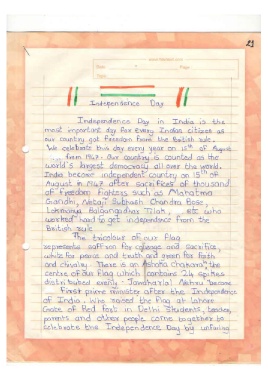 21
Independence Day
Independence Day in India is the
most important day for every Indian citizen as
our country got freedom from the British rule.
We celebrate this day every year on 15th of August
from 1947. Our country is counted as the
world's largest democracy all over the world.
India become independent country on 15th of
August in 1947 after sacrifices of thousand
of freedom fighters such as Mahatma
Gandhi, Netaji Subhash Chandra Bose,
Lokmanya Balgangadhar Tilak, etc who
worked hard to get independence from the
British rule.
The tricolour of our flag
represents saffron for courage and sacrifice,
white for peace and truth and green for faith
and chivalry. There is an Ashoka chakra, the
centre of our flag which contains 24 spikes
distributed evenly. Jawaharlal Nehru became
First prime minister after the Independence
of India. Who raised the flag at Lahore
Gate of Red fort in Delhi students, teacher,
parents and other people come together to
celebrate the Independence Day by unfuring